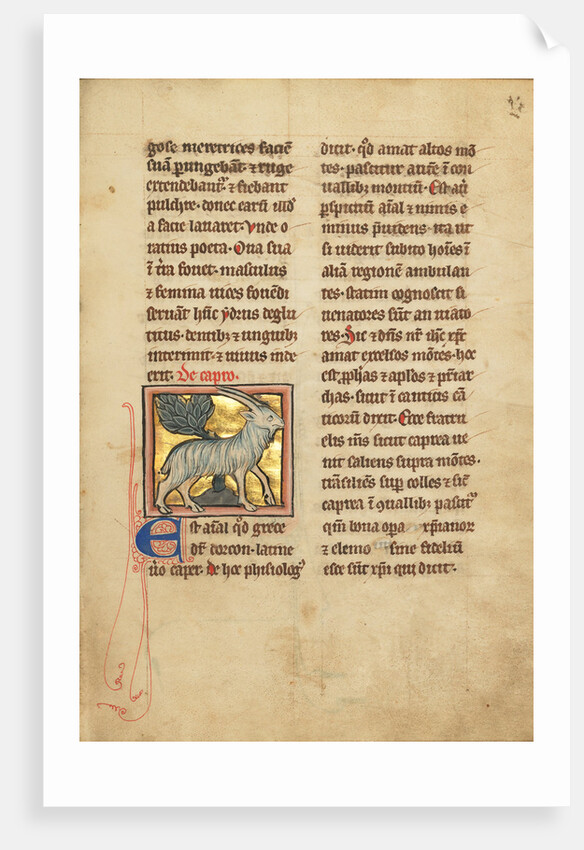 gose meretrices faciē
suā perungebāt & ruge
extendebant᷑ & fiebant
pulchre · donec earū uld᷑
a facie lauaret · Vnde o
ratius poeta · Oua sua
ī t̄ra fouet · masculus
& femina uices fouēdi
seruāt · hūc ydrus deglu
titus · dentib; & unguib;
interimit · & uiuus inde
exit · De capro ·
Est aīal qd̄ grece
dr̄ dorcon · latine
ū̊o caper · de hoc phisiolog᷒
dicit · qd̄ amat altos mō
tes · pascitur aut̄e ī con
uallib; montiū · Est aūt
p̱spicuū aīal & nimis e
minus p̄uidens · ita ut
si uiderit subito hoīes ī
aliā regionē ambulan
tes · statim cognoscit si
uenatores sūt an uiato
res · Sic & dn̄s nr̄ ih̄c xp̄c
amat excelsos mōtes · hoc
est p̱ph̄as & ap̄los & pr̄iar
chas · sicut ī canticis cā
ticorū dicit · Ecce fratru
elis m̄s sicut caprea ue
nit saliens supra mōtes ·
trāsiliēs sup̱ colles & sic̄
caprea ī 9uallib; pascit᷑
qm̄ bona op̱a xp̄ianor
& elemo sine fidelium
esce sūt xp̄i qui dicit ·